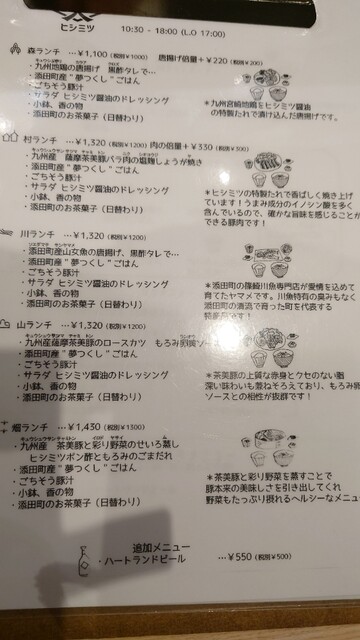 ヒシミツ
10:30 - 18:00 (L.O 17:00)
森ランチ …¥1,100 (税別¥1000) 唐揚げ倍量+¥220 (税別¥200)
・九州地鶏の唐揚げ 黒酢タレで…
・添田町産"夢つくし"ごはん
・ごちそう豚汁
・サラダ ヒシミツ醤油のドレッシング
・小鉢、香の物
・添田町のお茶菓子(日替わり)
*九州宮崎地鶏をヒシミツ醤油
の特製たれで漬け込んだ唐揚げです。
村ランチ …¥1,320 (税別¥1200) 肉の倍量+¥330 (税別¥300)
・九州産 薩摩茶美豚バラ肉の塩麹しょうが焼き
・添田町産"夢つくし"ごはん
・ごちそう豚汁
・サラダ ヒシミツ醤油のドレッシング
・小鉢、香の物
・添田町のお茶菓子(日替わり)
*ヒシミツの特製だれで香ばしく焼き上げ
ています!うまみ成分のイノシン酸を多く
含んでいるので、確かな旨味を感じることが
できる豚肉です!
川ランチ …¥1,320 (税別¥1200)
・添田町産山女魚の唐揚げ、黒酢タレで…
・添田町産"夢つくし"ごはん
・ごちそう豚汁
・サラダ ヒシミツ醤油のドレッシング
・小鉢、香の物
・添田町のお茶菓子(日替わり)
*添田町の篠崎川魚専門店が愛情を込めて
育てたヤマメです。川魚特有の臭みもなく
添田町の清流で育った町を代表する
特産品です!
山ランチ …¥1,320 (税別¥1200)
・九州産薩摩茶美豚のロースカツ もろみ割烹ソース
・添田町産"夢つくし"ごはん
・ごちそう豚汁
・サラダ ヒシミツ醤油のドレッシング
・小鉢、香の物
・添田町のお茶菓子(日替わり)
*茶美豚の上質な赤身とクセのない脂
深い味わいも兼ねそろえており、もろみ割
ソースとの相性が抜群です!
畑ランチ …¥1,430 (税別¥1300)
・九州産 茶美豚と彩り野菜のせいろ蒸し
ヒシミツポン酢ともろみのごまだれ
・添田町産"夢つくし"ごはん
・ごちそう豚汁
・小鉢、香の物
・添田町のお茶菓子(日替わり)
*茶美豚と彩り野菜を蒸すことで
豚本来の美味しさを引き出してくれ
野菜もたっぷり摂れるヘルシーなメニュー
追加メニュー
・ハートランドビール …¥550 (税別¥500)